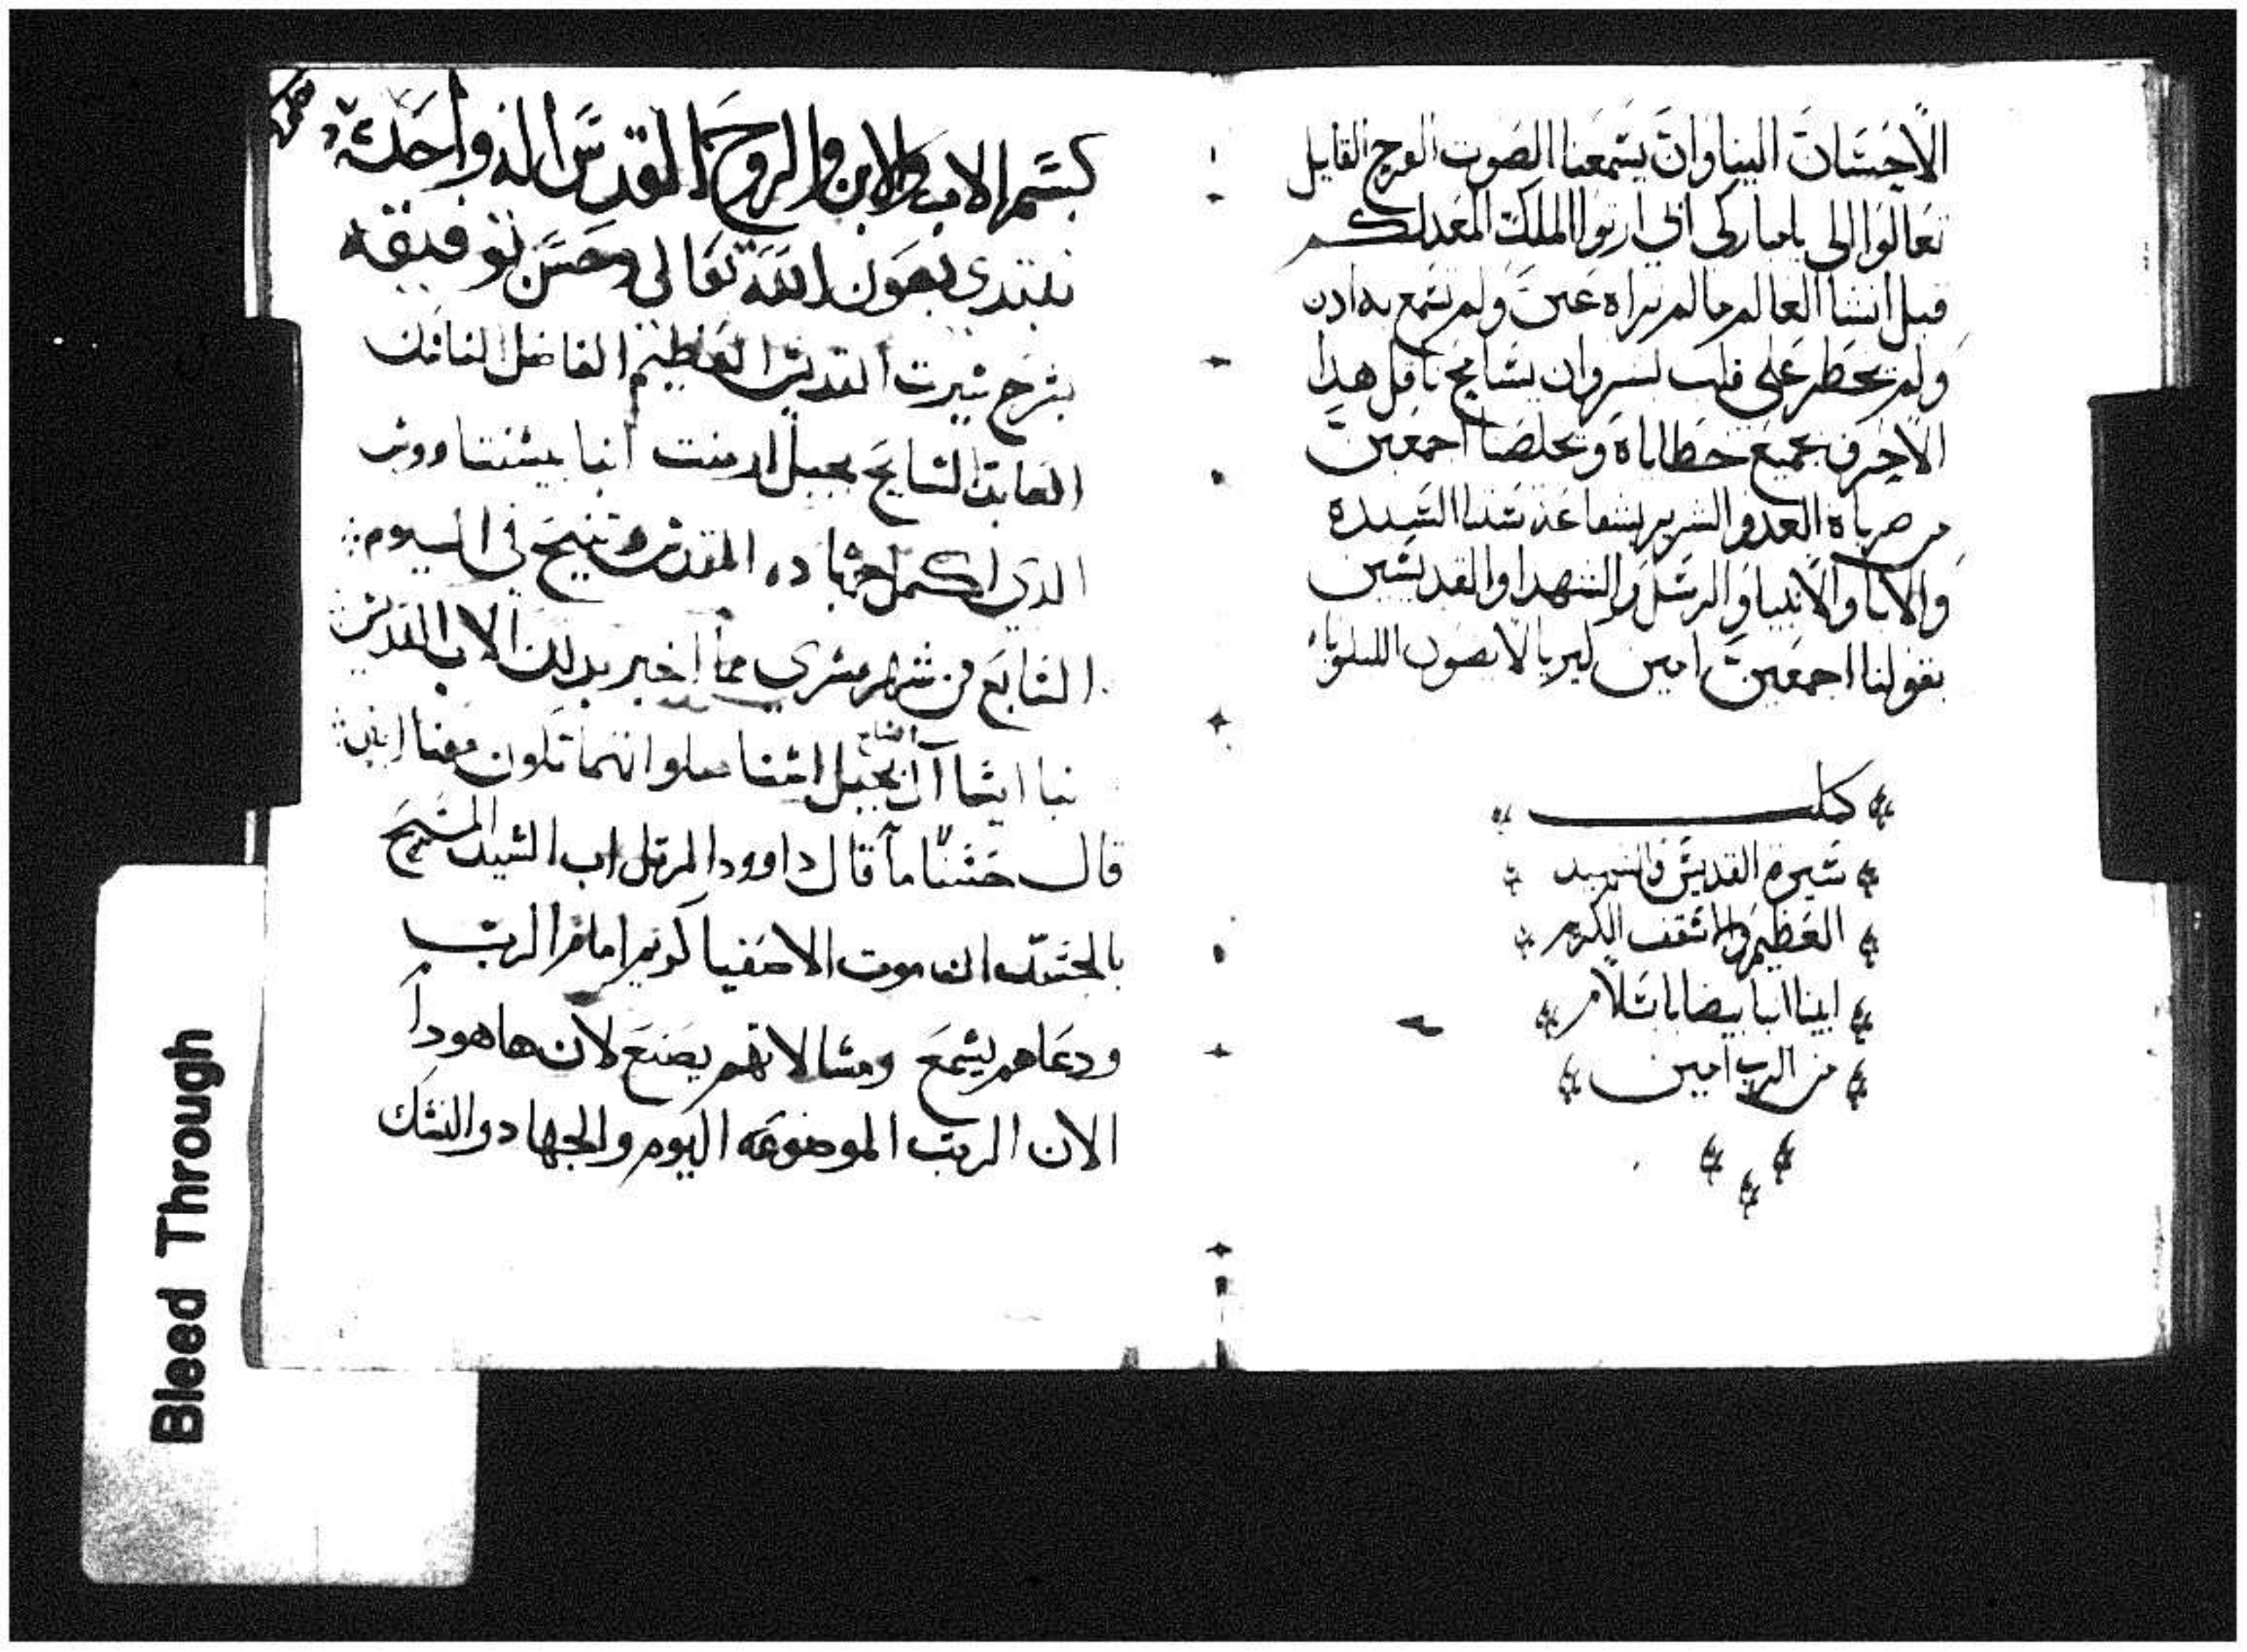 الاحسان الينا وان يسمعنا الصوت الفرح القايل
تعالوا الى يا مباركى ابى ارثوا الملك المعد لكم
قبل انشا العالم ما لم تراه عين ولم تسمع به ادن
ولم يخطر على قلب بشر وان يسامح ناقل هدا
الاحرف بجميع خطاياه ويخلصنا اجمعين
من العدو الشرير بشفاعة ستنا السيدة
والابا والانبيا والرسل والشهدا والقديسين
بقولنا اجمعين امين كيرياليصون
كملت
سيرة القديس والشهيد
العظيم والاسقف الكريم
ابينا انبا بيضابا بسلام
من الرب امين
بسم الاب والابن والروح القدس اله واحد
نبتدى بعون الله تعالى وحسن توفيقه
بشرح سيرت القديس العظيم الفاضل الناسك
العابد السايح بجبل ارمنت انبا
الدى اكمل جهاده المقدس وتنيح فى اليوم
السابع من شهر مسرى مما اخبر بدلك الاب القديس
بجبل اسنا تكون معنا امين
قال حسنا ما قال داوود المرتل اب السيد المسيح
بالجسد ان موت الاصفيا كريم امام الرب
ودعاهم يسمع ومسالاتهم يصنع لان هاهودا
الان الرتب الموضوعه اليوم والجهاد والنسك
Bleed Through